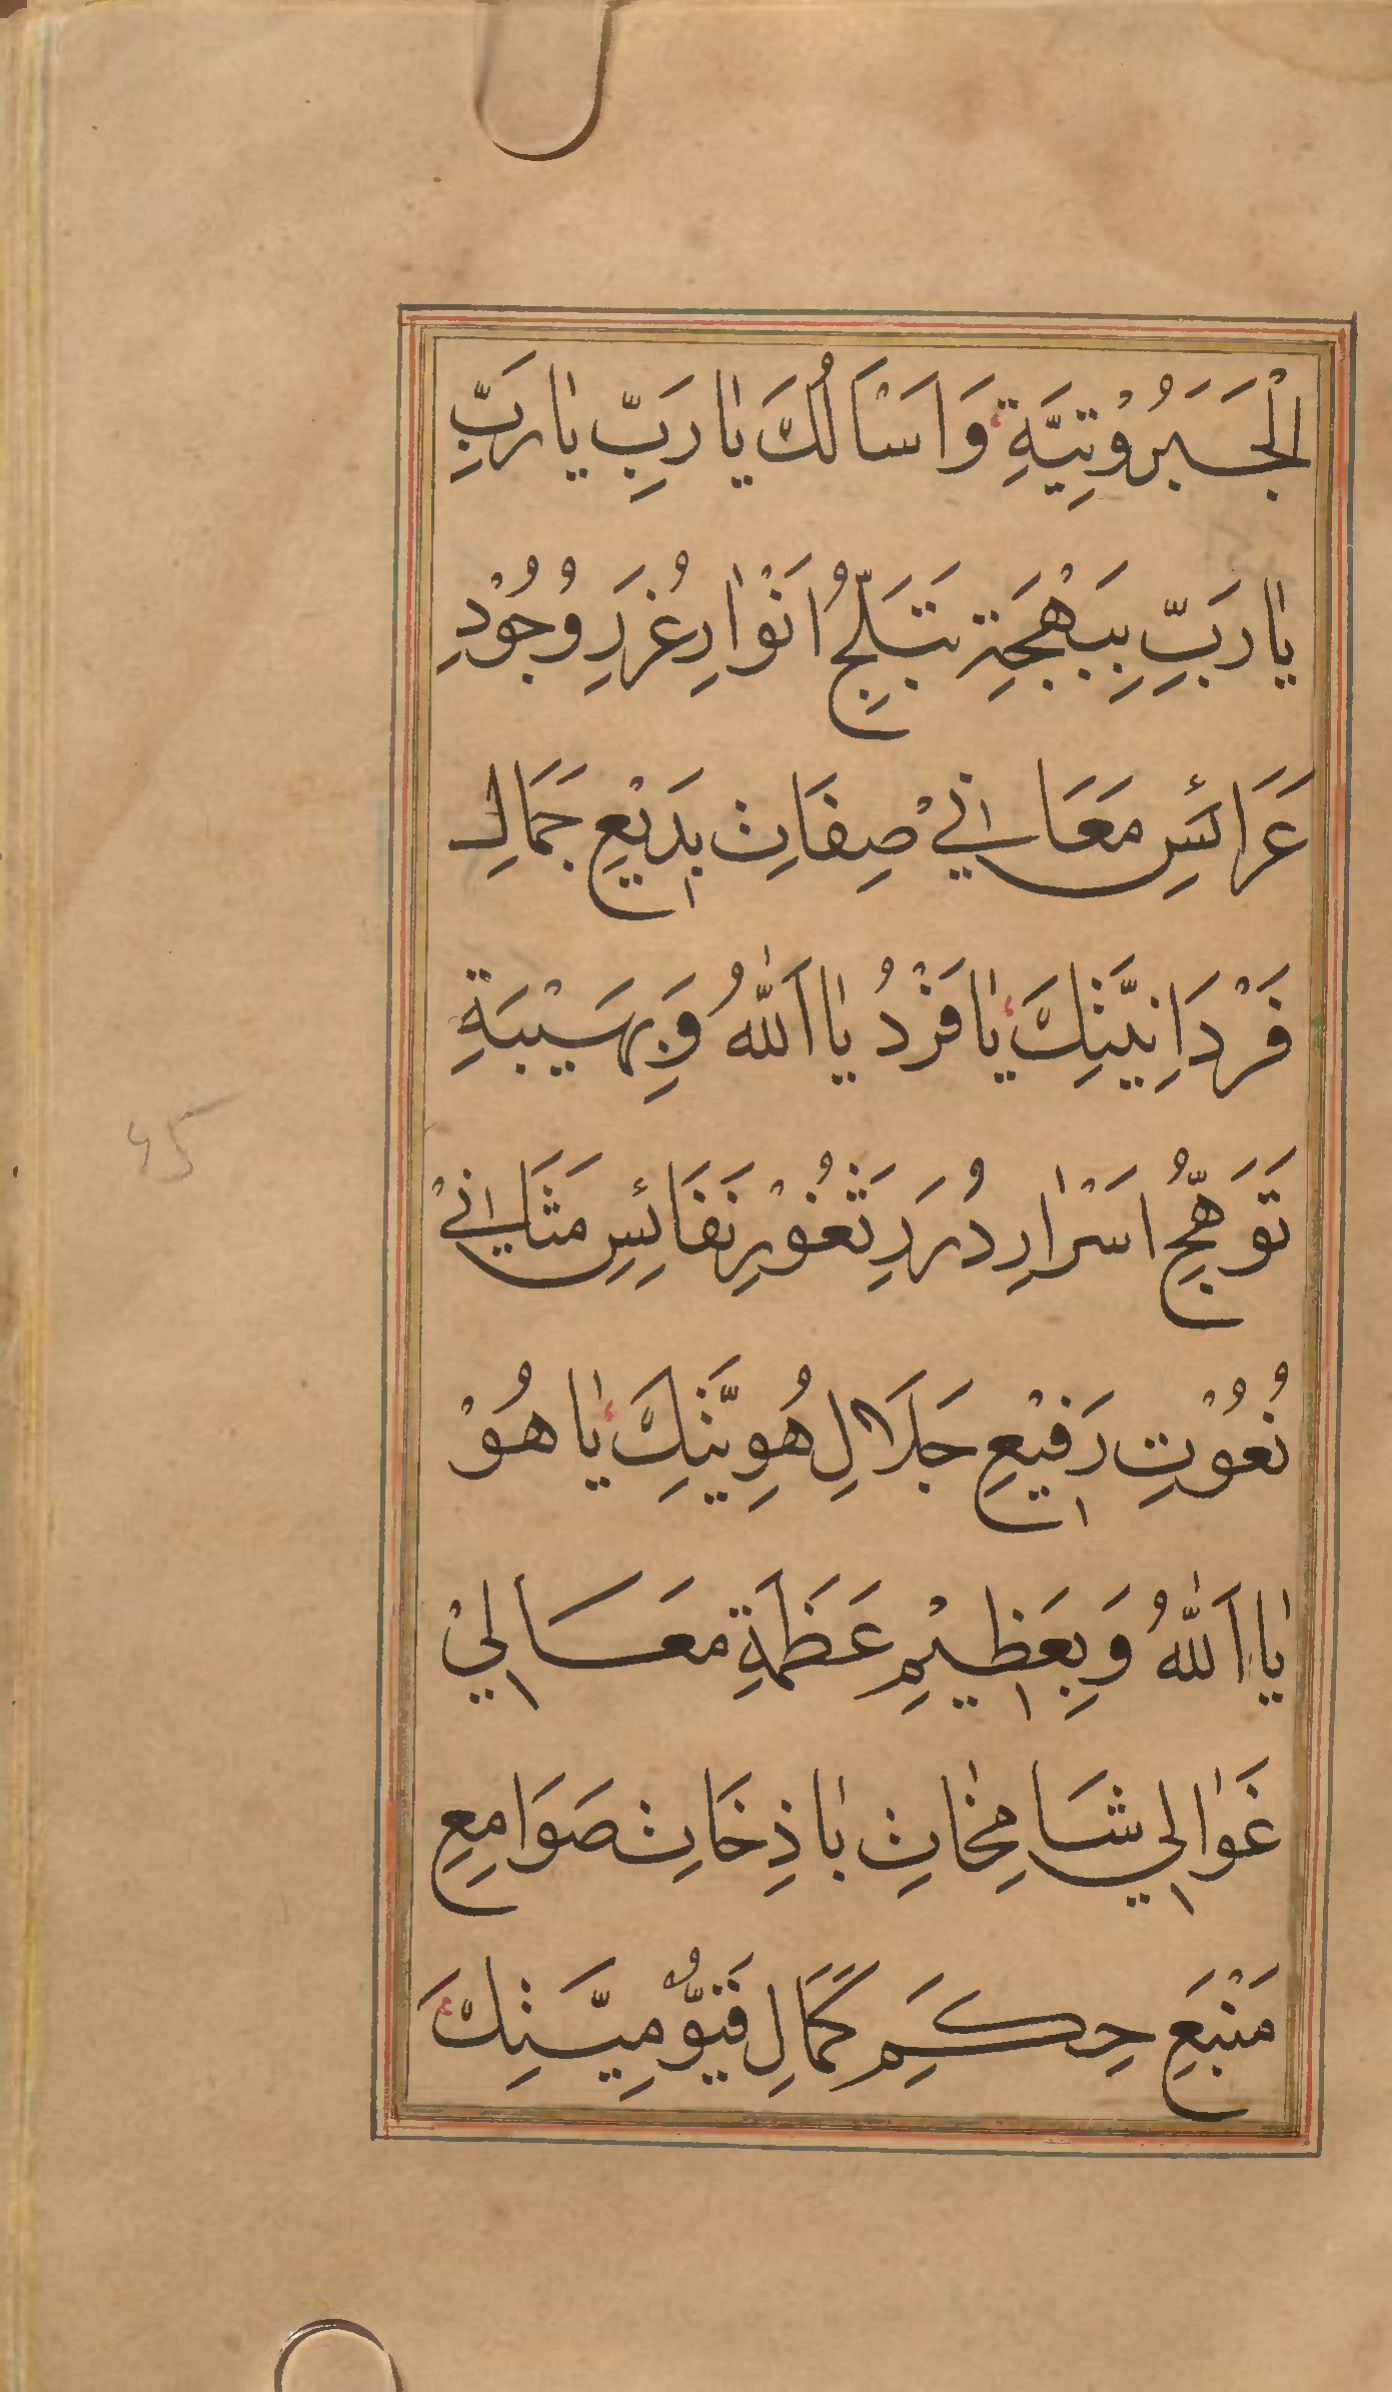 الْجَبَرُوْتِيَّةِ وَاَسْاَلُكَ يَا رَبِّ يَا رَبِّ
يَا رَبِّ بِبَهْجَةِ تَبَلُّجِ اَنْوَارِ غُرَرِ وُجُوْدِ
عَرَائِسِ مَعَانِيْ صِفَاتِ بَدِيْعِ جَمَالِ
فَرْدَانِيَّتِكَ يَا فَرْدُ يَا اَللّٰهُ وَبِهَيْبَةِ
تَوَهُّجِ اَسْرَارِ دُرَرِ ثُغُوْرِ نَفَائِسِ مَثَانِيْ
نُعُوْتِ رَفِيْعِ جَلَالِ هُوِيَّتِكَ يَا هُوْ
يَا اَللّٰهُ وَبِعَظِيْمِ عَظَمَةِ مَعَالِيْ
غَوَالِي شَامِخَاتِ بَاذِخَاتِ صَوَامِعِ
مَنْبَعِ حِكَمِ كَمَالِ قَيُّوْمِيَّتِكَ
45